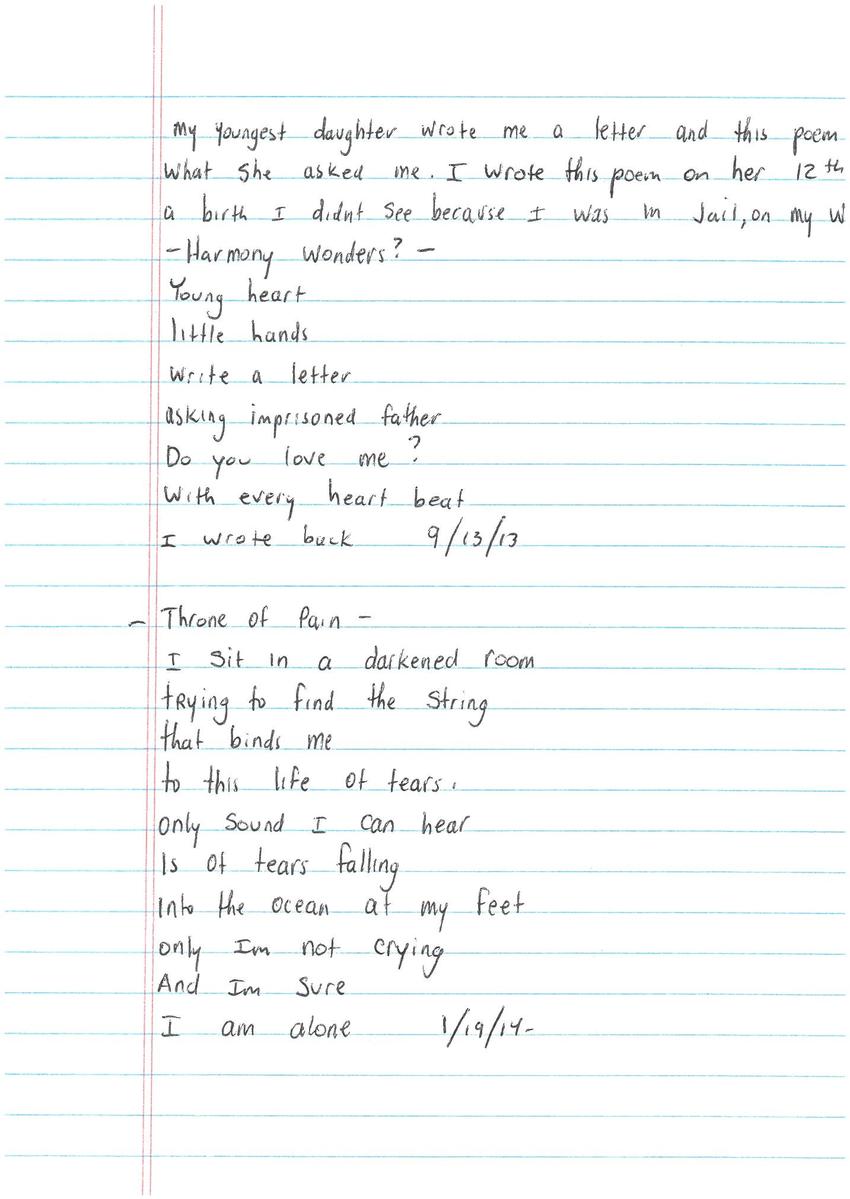 My youngest daughter wrote me a letter and this poem
What she asked me. I wrote this poem on her 12th
a birth I didnt see because I was in Jail, on my W
- Harmony wonders? -
Young heart
little hands
write a letter
asking imprisoned father
Do you love me?
With every heart beat
I wrote back 9/13/13
- Throne of Pain -
I sit in a darkened room
tRying to find the string
that binds me
to this life of tears.
only sound I can hear
Is of tears falling
Into the ocean at my feet
only Im not crying
And Im sure
I am alone 1/19/14-